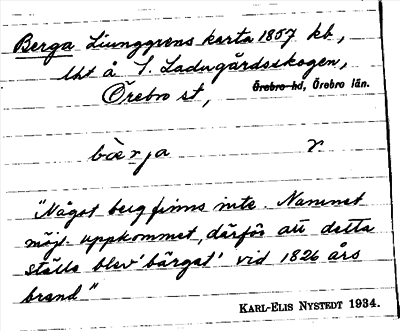 Berga Ljunggrens karta 1857 kb,
lht å S. Ladugårdsskogen,
Örebro st, Örebro hd, Örebro län.
bæ̀rja r
"Något berg finns inte. Namnet
möjl. uppkommet, därför att detta
ställe blev 'bärgat' vid 1826 års
brand"
KARL-ELIS NYSTEDT 1934.